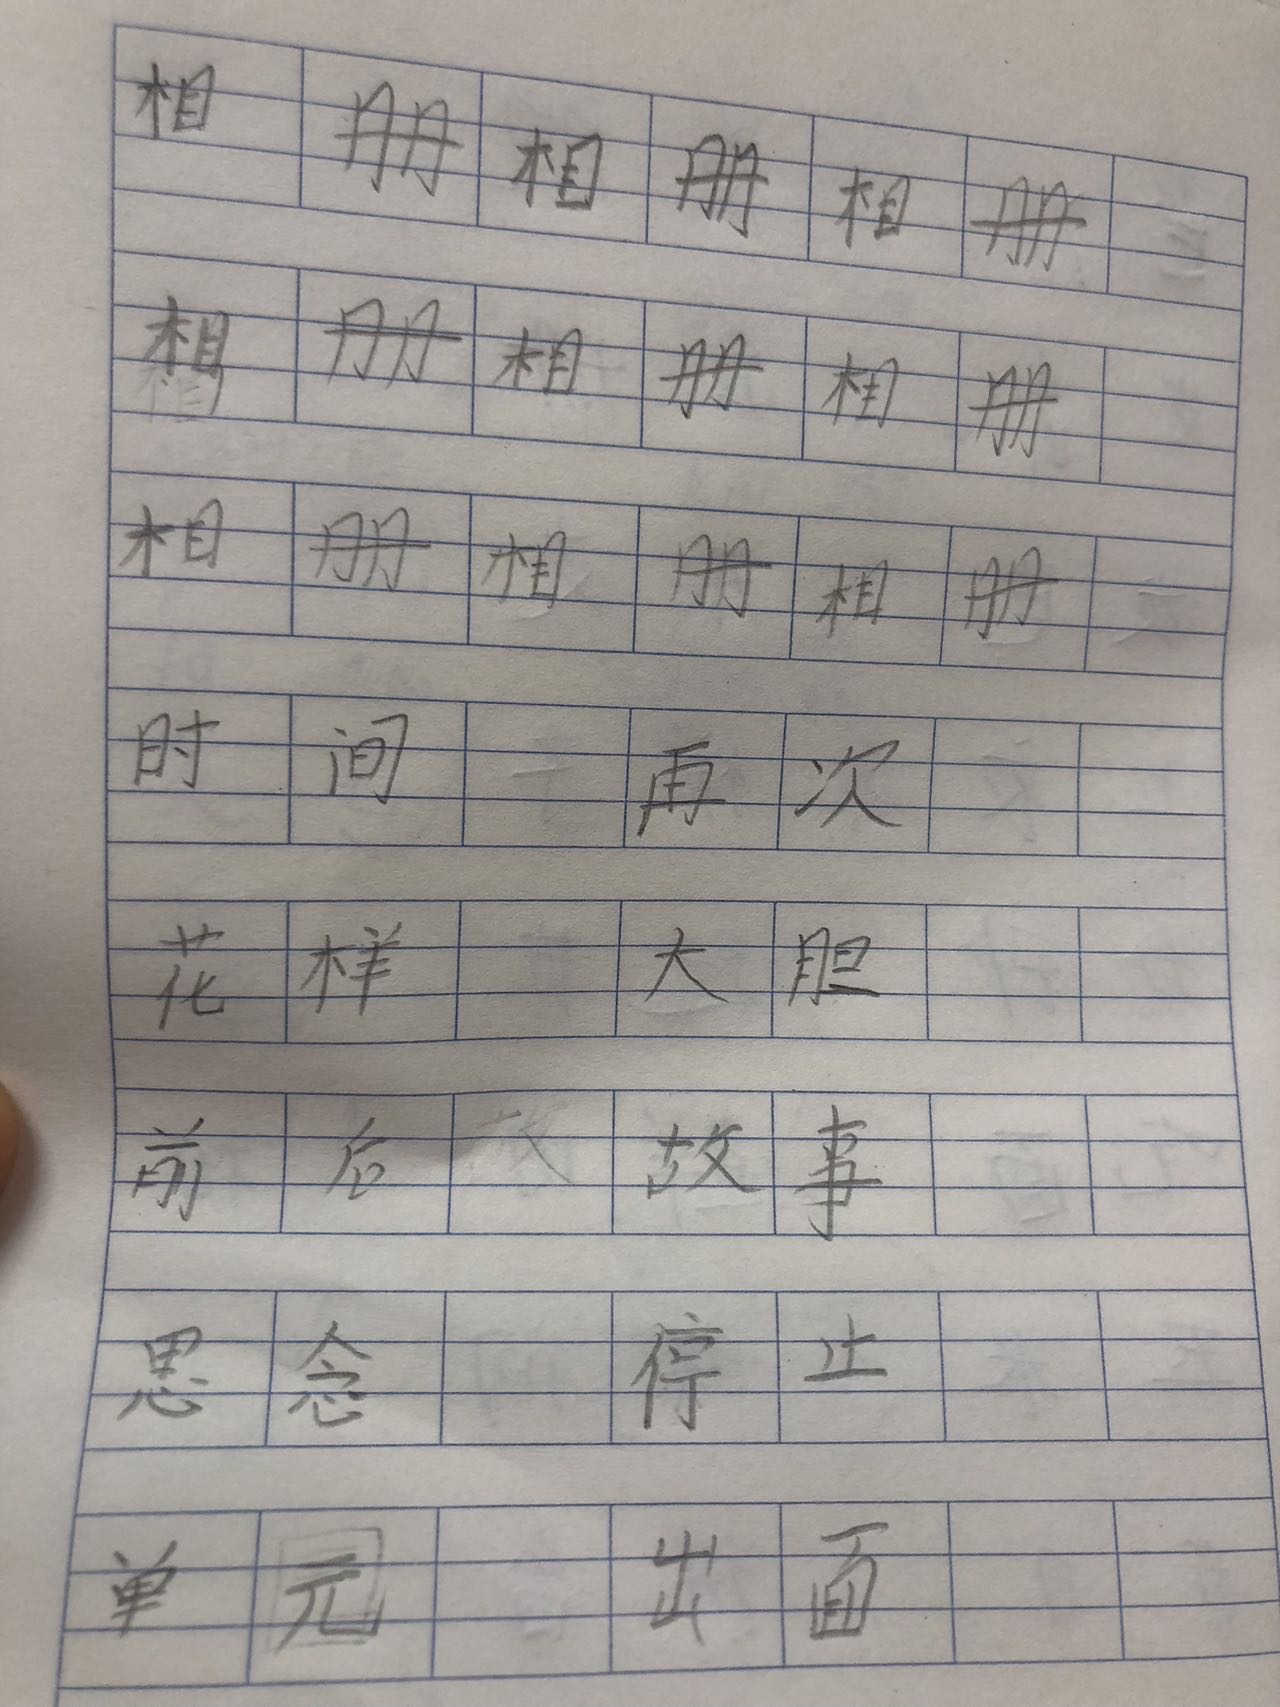 相册相册相册
相册相册相册
相册相册相册
时间 再次
花样 大胆
前后 故事
思念 停止
单元 出面